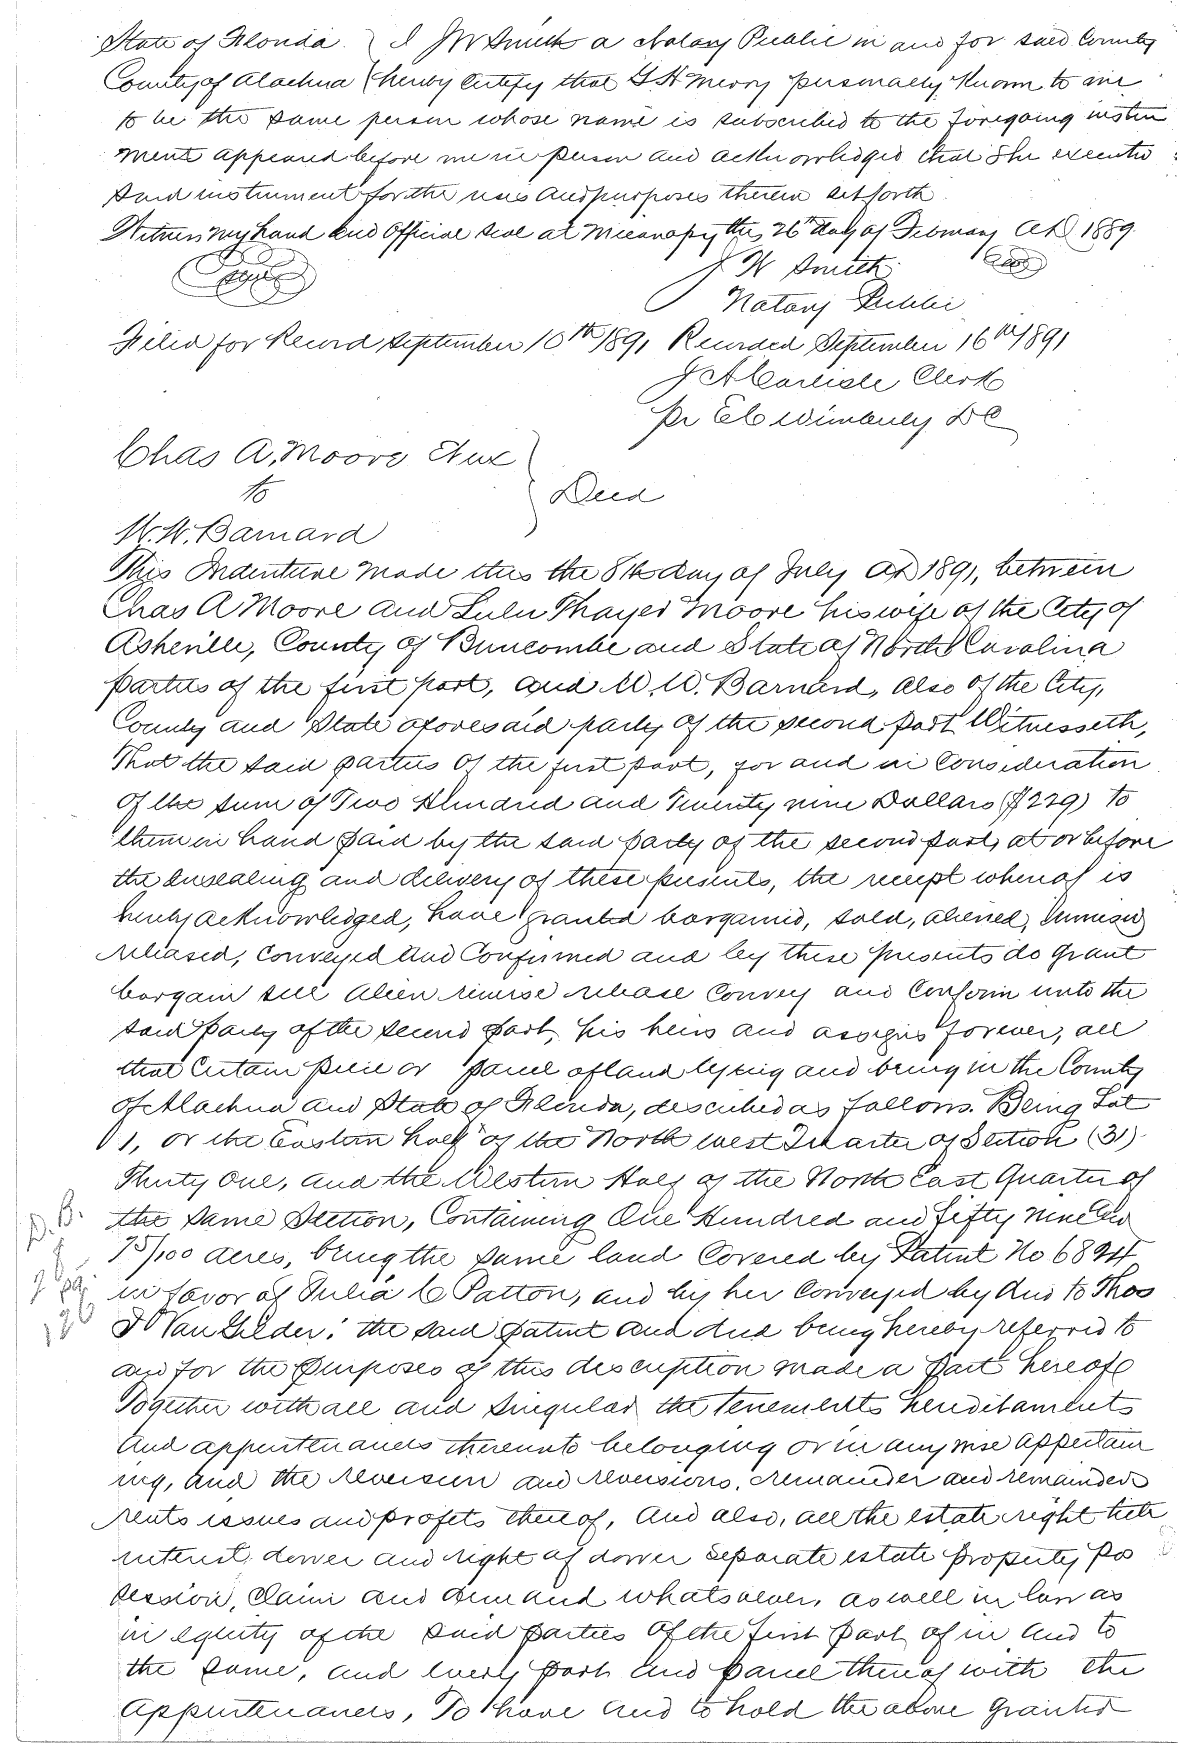 State of Florida } I J W Smith a Notary Public in and for said County
County of Alachua { hereby certify that G H Merry personally known to me
to be the same person whose name is subscribed to the foregoing instru
ment appeared before me in person and acknowledged that she executed
said instrument for the uses and purposes therein set forth
Witness my hand and Official seal at Micanopy this 26th day of February AD 1889
J W Smith Seal
Notary Public
Filed for Record September 10th 1891 Recorded September 16th 1891
J A Carlisle Clerk
pr E C Wimberly DC
Chas A. Moore Etux
to } Deed
W. W. Barnard
This Indenture made this the 8th day of July AD 1891, between
Chas A Moore and Lulu Thayer Moore his wife of the City of
Asheville, County of Buncombe and State of North Carolina
parties of the first part, and W. W. Barnard, also of the City,
County and State aforesaid party of the second part Witnesseth,
That the said parties of the first part, for and in consideration
of the sum of Two Hundred and Twenty nine Dollars ($229) to
them in hand paid by the said party of the second part, at or before
the ensealing and delivery of these presents, the receipt whereof is
hereby acknowledged, have granted bargained, sold, aliened, remised
released, conveyed and Confirmed and by these presents do grant
bargain sell alien remise release convey and confirm unto the
said party of the second part, his heirs and assigns forever, all
that certain piece or parcel of land lying and being in the County
of Alachua and State of Florida, described as follows. Being Lot
1, or the Eastern half of the North west Quarter of Section (31)
Thirty one, and the Western Half of the North East Quarter of
the same Section, Containing One Hundred and fifty nine and
D. B.
75/100 acres, being the same land covered by Patent No 6894
in favor of Julia C Patton, and by her conveyed by deed to Thos
J Van Gilder: the said patent and deed being hereby referred to
and for the purposes of this description made a part hereof
Together with all and singular the tenements hereditaments
and appurtenances thereunto belonging or in anywise appertain
ing, and the reversion and reversions, remainder and remainders
rents issues and profits thereof, And also, all the estate right title
interest dower and right of dower separate estate property pos
session, claim and demand whatsoever, as well in law as
in equity of the said parties of the first part of in and to
the same, and every part and parcel thereof with the
appurtenances, To have and to hold the above granted